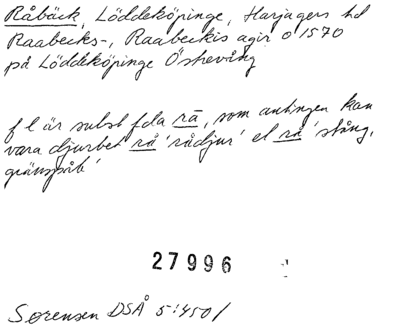 Råbäck, Löddeköpinge, Harjagers hd
Raabecks-, Raabeckis agir o 1570
på Löddeköpinge Östhevång
f l är subst fda rā, som antingen kan
vara djurbet rå 'rådjur' el rå 'stång,
gränspåle'
27996
Sørensen DSÅ 5:450/